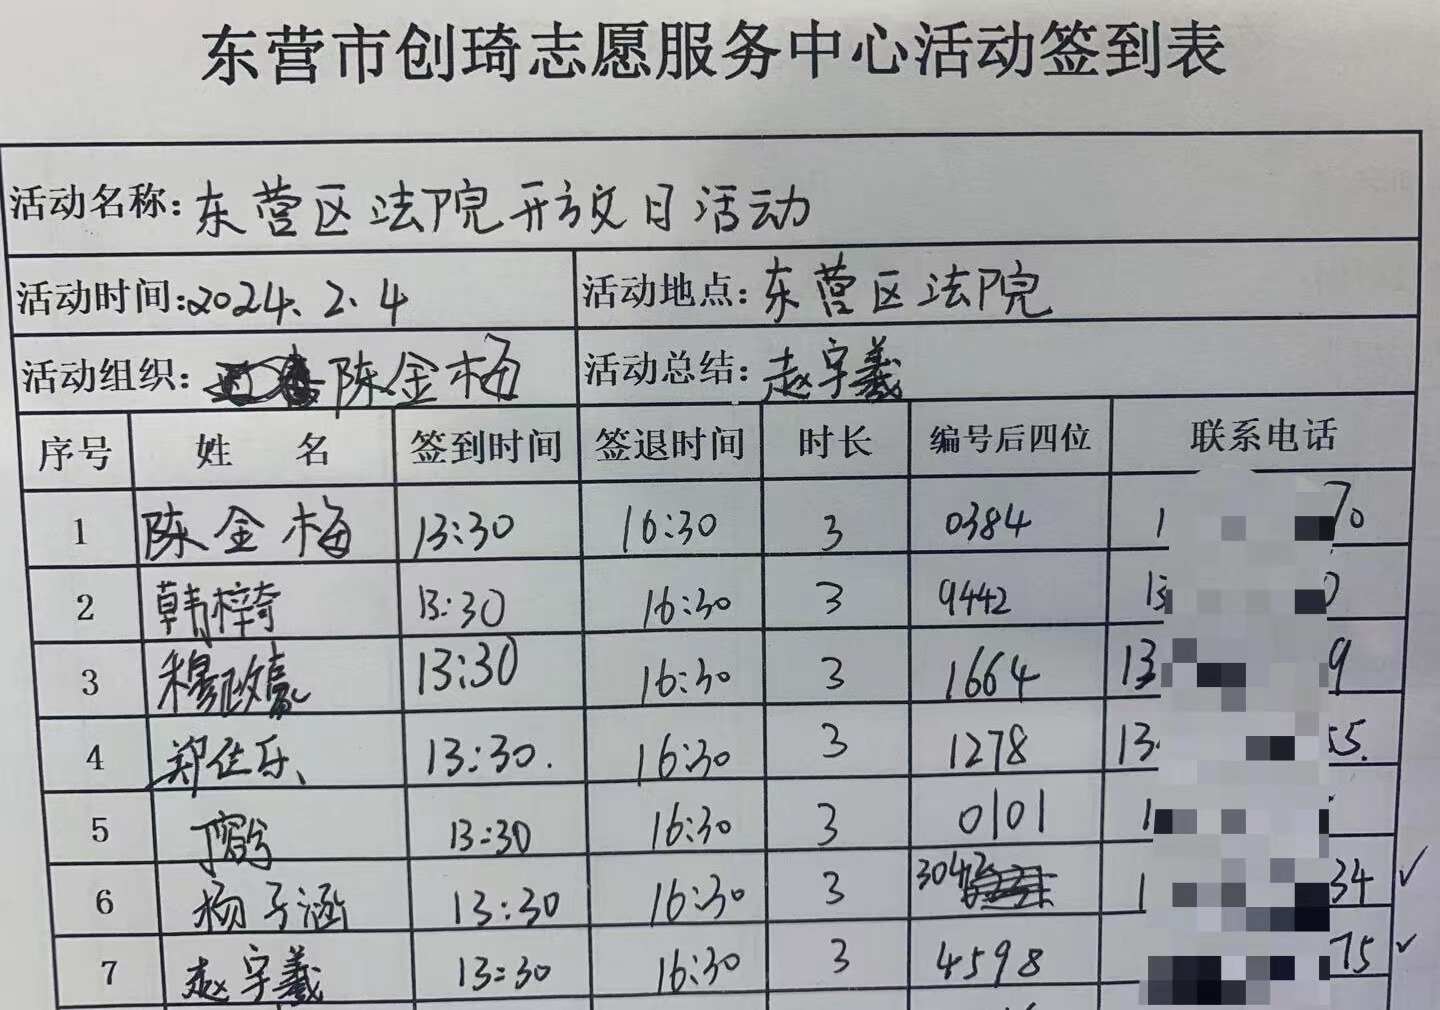 东营市创琦志愿服务中心活动签到表
活动名称：东营区法院开放日活动
活动时间：2024.2.4 活动地点：东营区法院
活动组织：陈金梅 活动总结：赵宇羲
序号 姓名 签到时间 签退时间 时长 编号后四位 联系电话
1 陈金梅 13:30 16:30 3 0384 1 70
2 韩梓琦 13:30 16:30 3 9442 13 0
3 穆 13:30 16:30 3 1664 13 9
4 郑仕乐 13:30. 16:30 3 1278 13 55.
5 丁 13:30 16:30 3 0101 1
6 杨子涵 13:30 16:30 3 3042 1 34 ✓
7 赵宇羲 13:30 16:30 3 4598 75 ✓